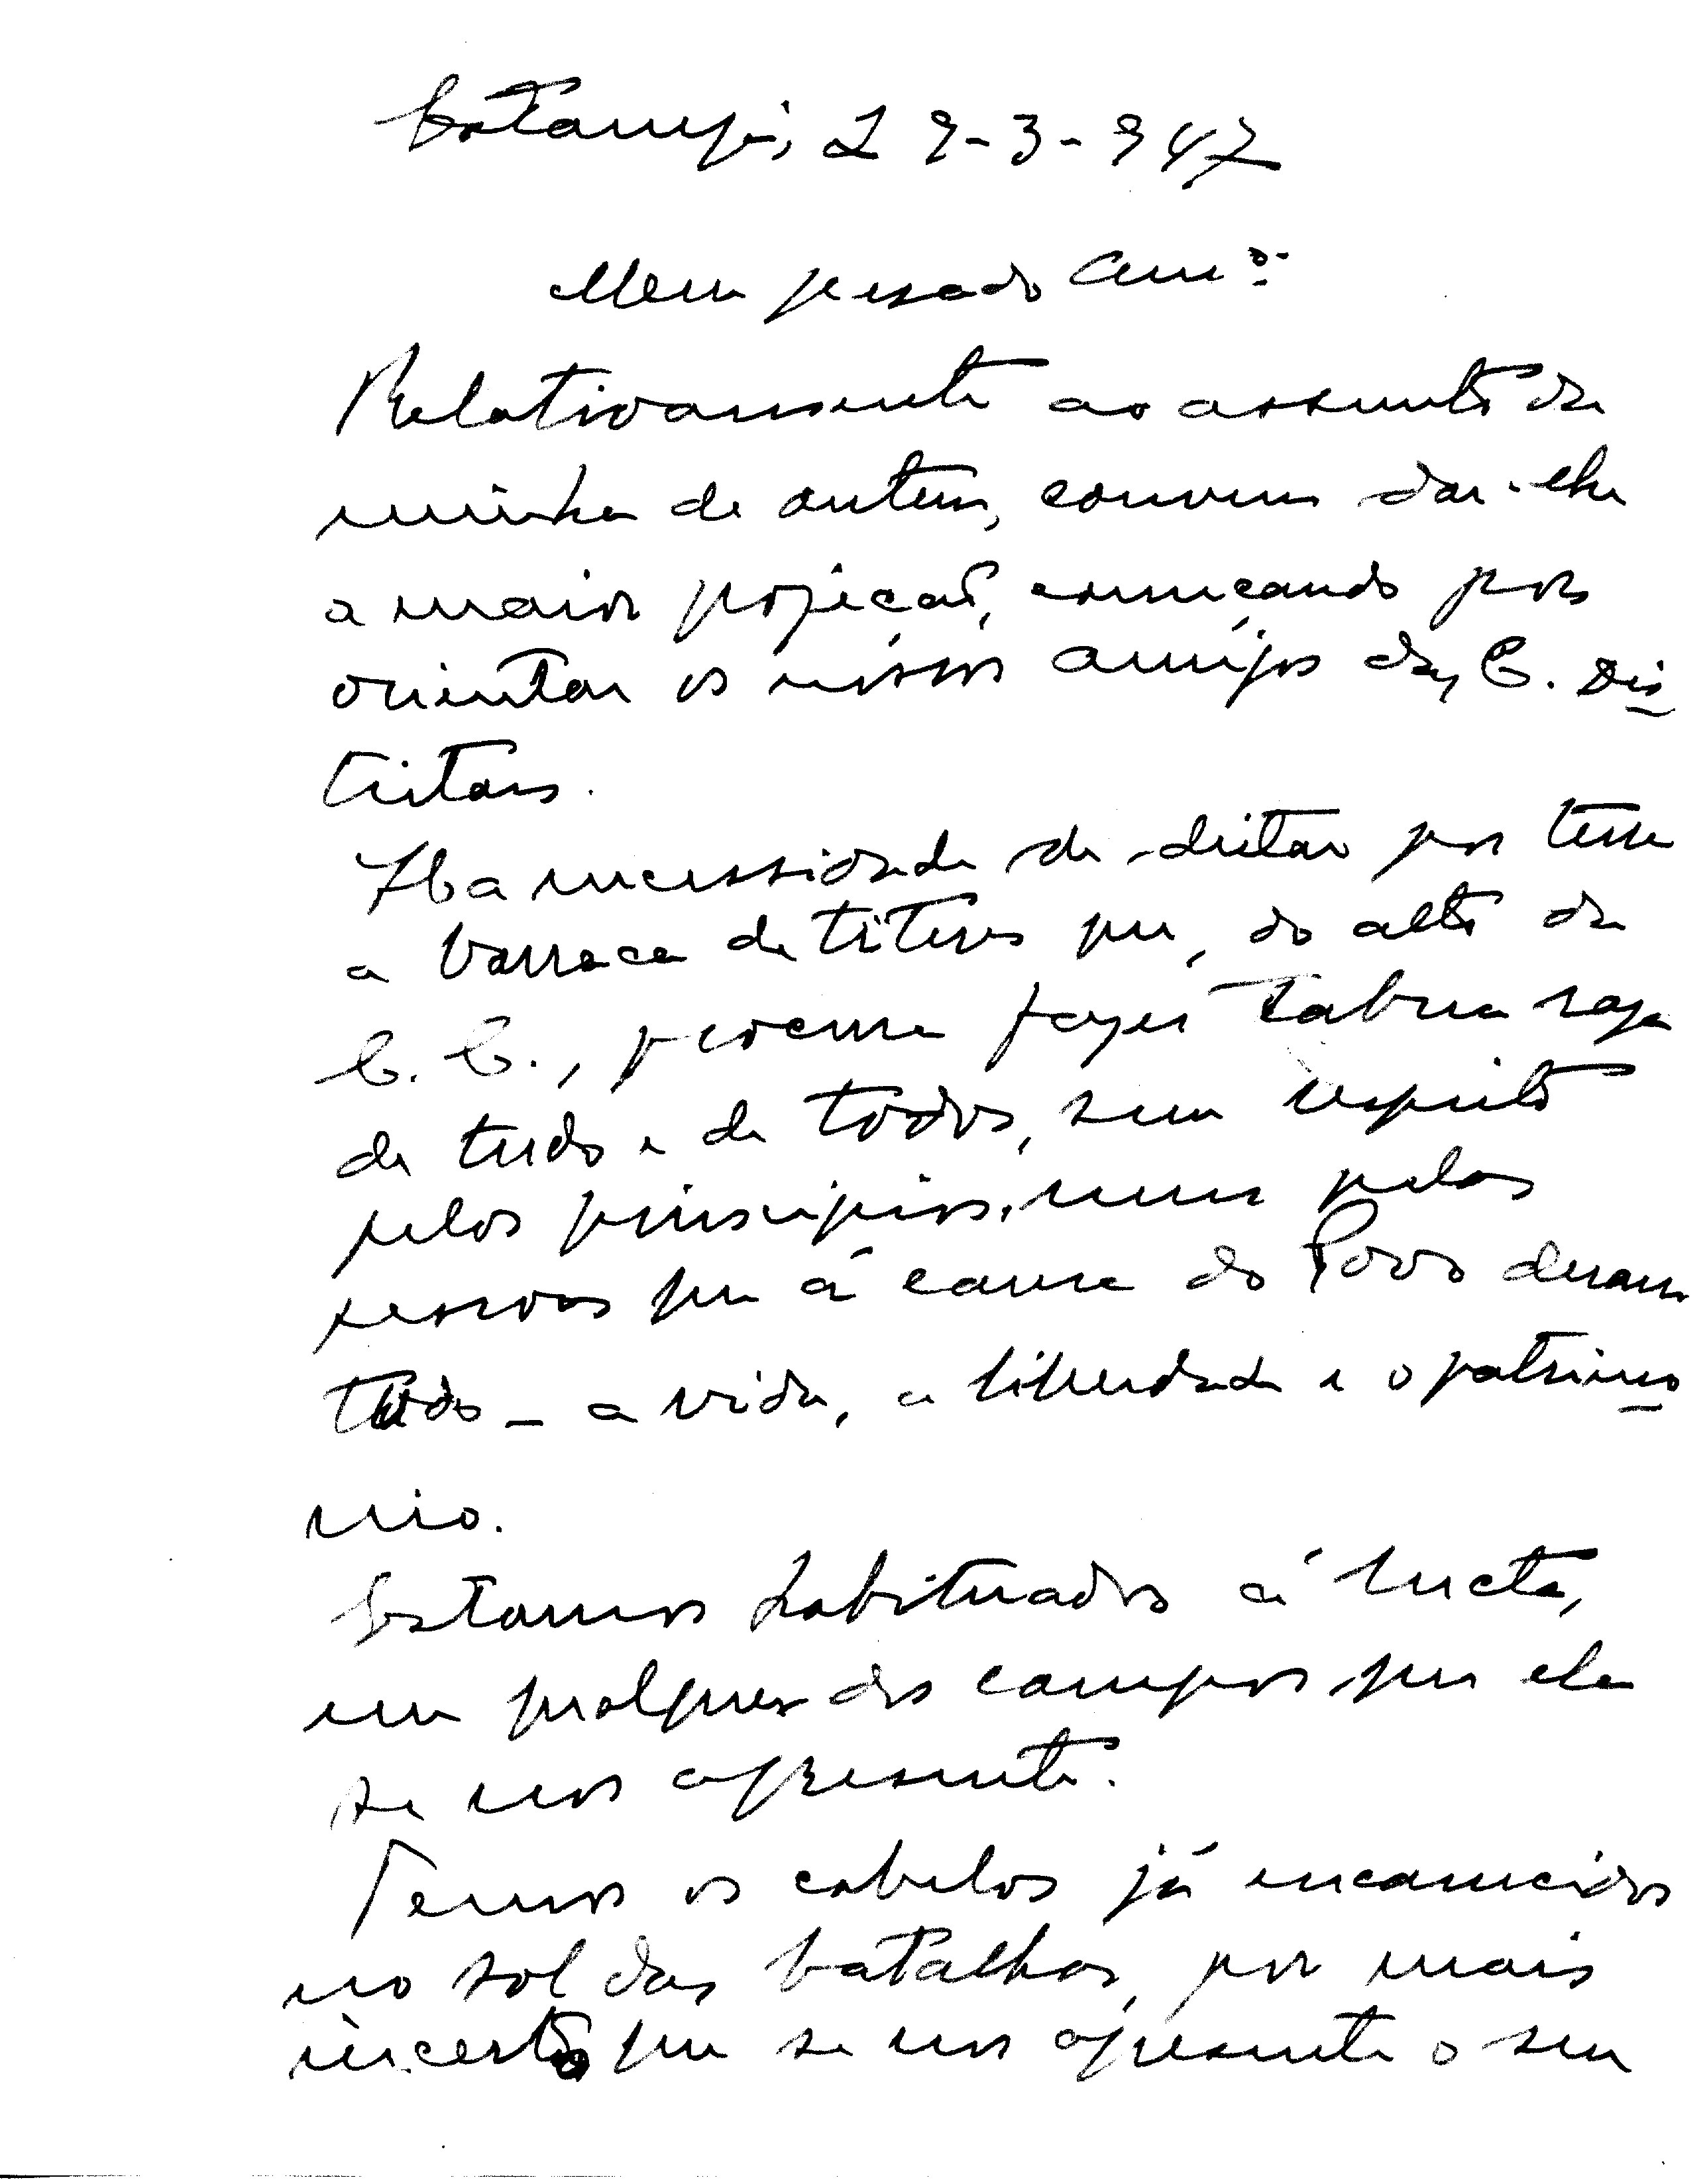 29-3-947
Meu prezado Amº:
Relativamente ao assunto da
minha de ontem, convem dar-lhe
a maior projecção, começando por
orientar os nóssos amigos das C. Dis
tritais.
Ha necessidade de deitar por terra
a barraca de titeres que, do alto da
C. C., procura fazer tabua rasa
de tudo e de todos, sem respeito
pelos principios, nem pelas
pessoas que á causa do Povo deram
tudo - a vida, a liberdade e o patrimo
nio.
Estamos habituados á lucta,
em qualquer dos campos que ela
se nos apresente.
Temos os cabelos já encanecidos
no sol das batalhas, por mais
incerto que se nos apresente o seu